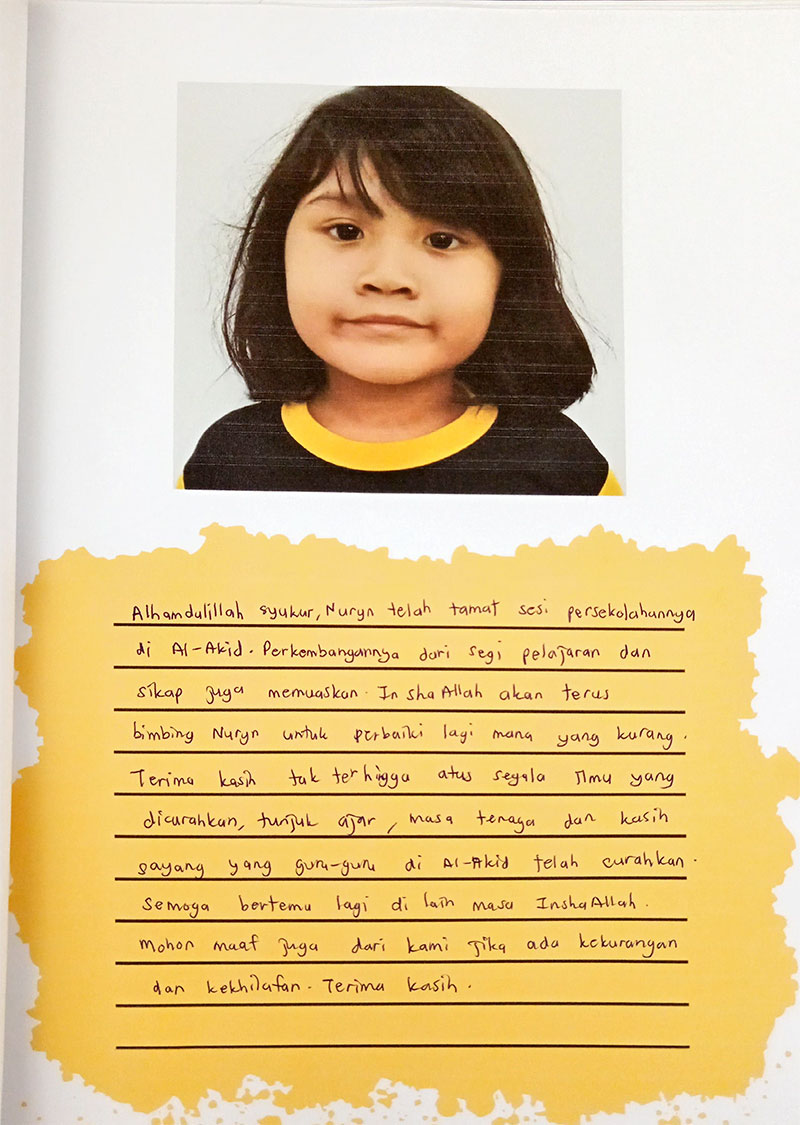 Alhamdulillah syukur, Nuryn telah tamat sesi persekolahannya
di Al-Akid. Perkembangannya dari segi pelajaran dan
sikap juga memuaskan. In sha Allah akan terus
bimbing Nuryn untuk perbaiki lagi mana yang kurang.
Terima kasih tak terhingga atas segala ilmu yang
dicurahkan, tunjuk ajar, masa tenaga dan kasih
sayang yang guru-guru di Al-Akid telah curahkan.
Semoga bertemu lagi di lain masa InshaAllah.
Mohon maaf juga dari kami jika ada kekurangan
dan kekhilafan. Terima kasih.